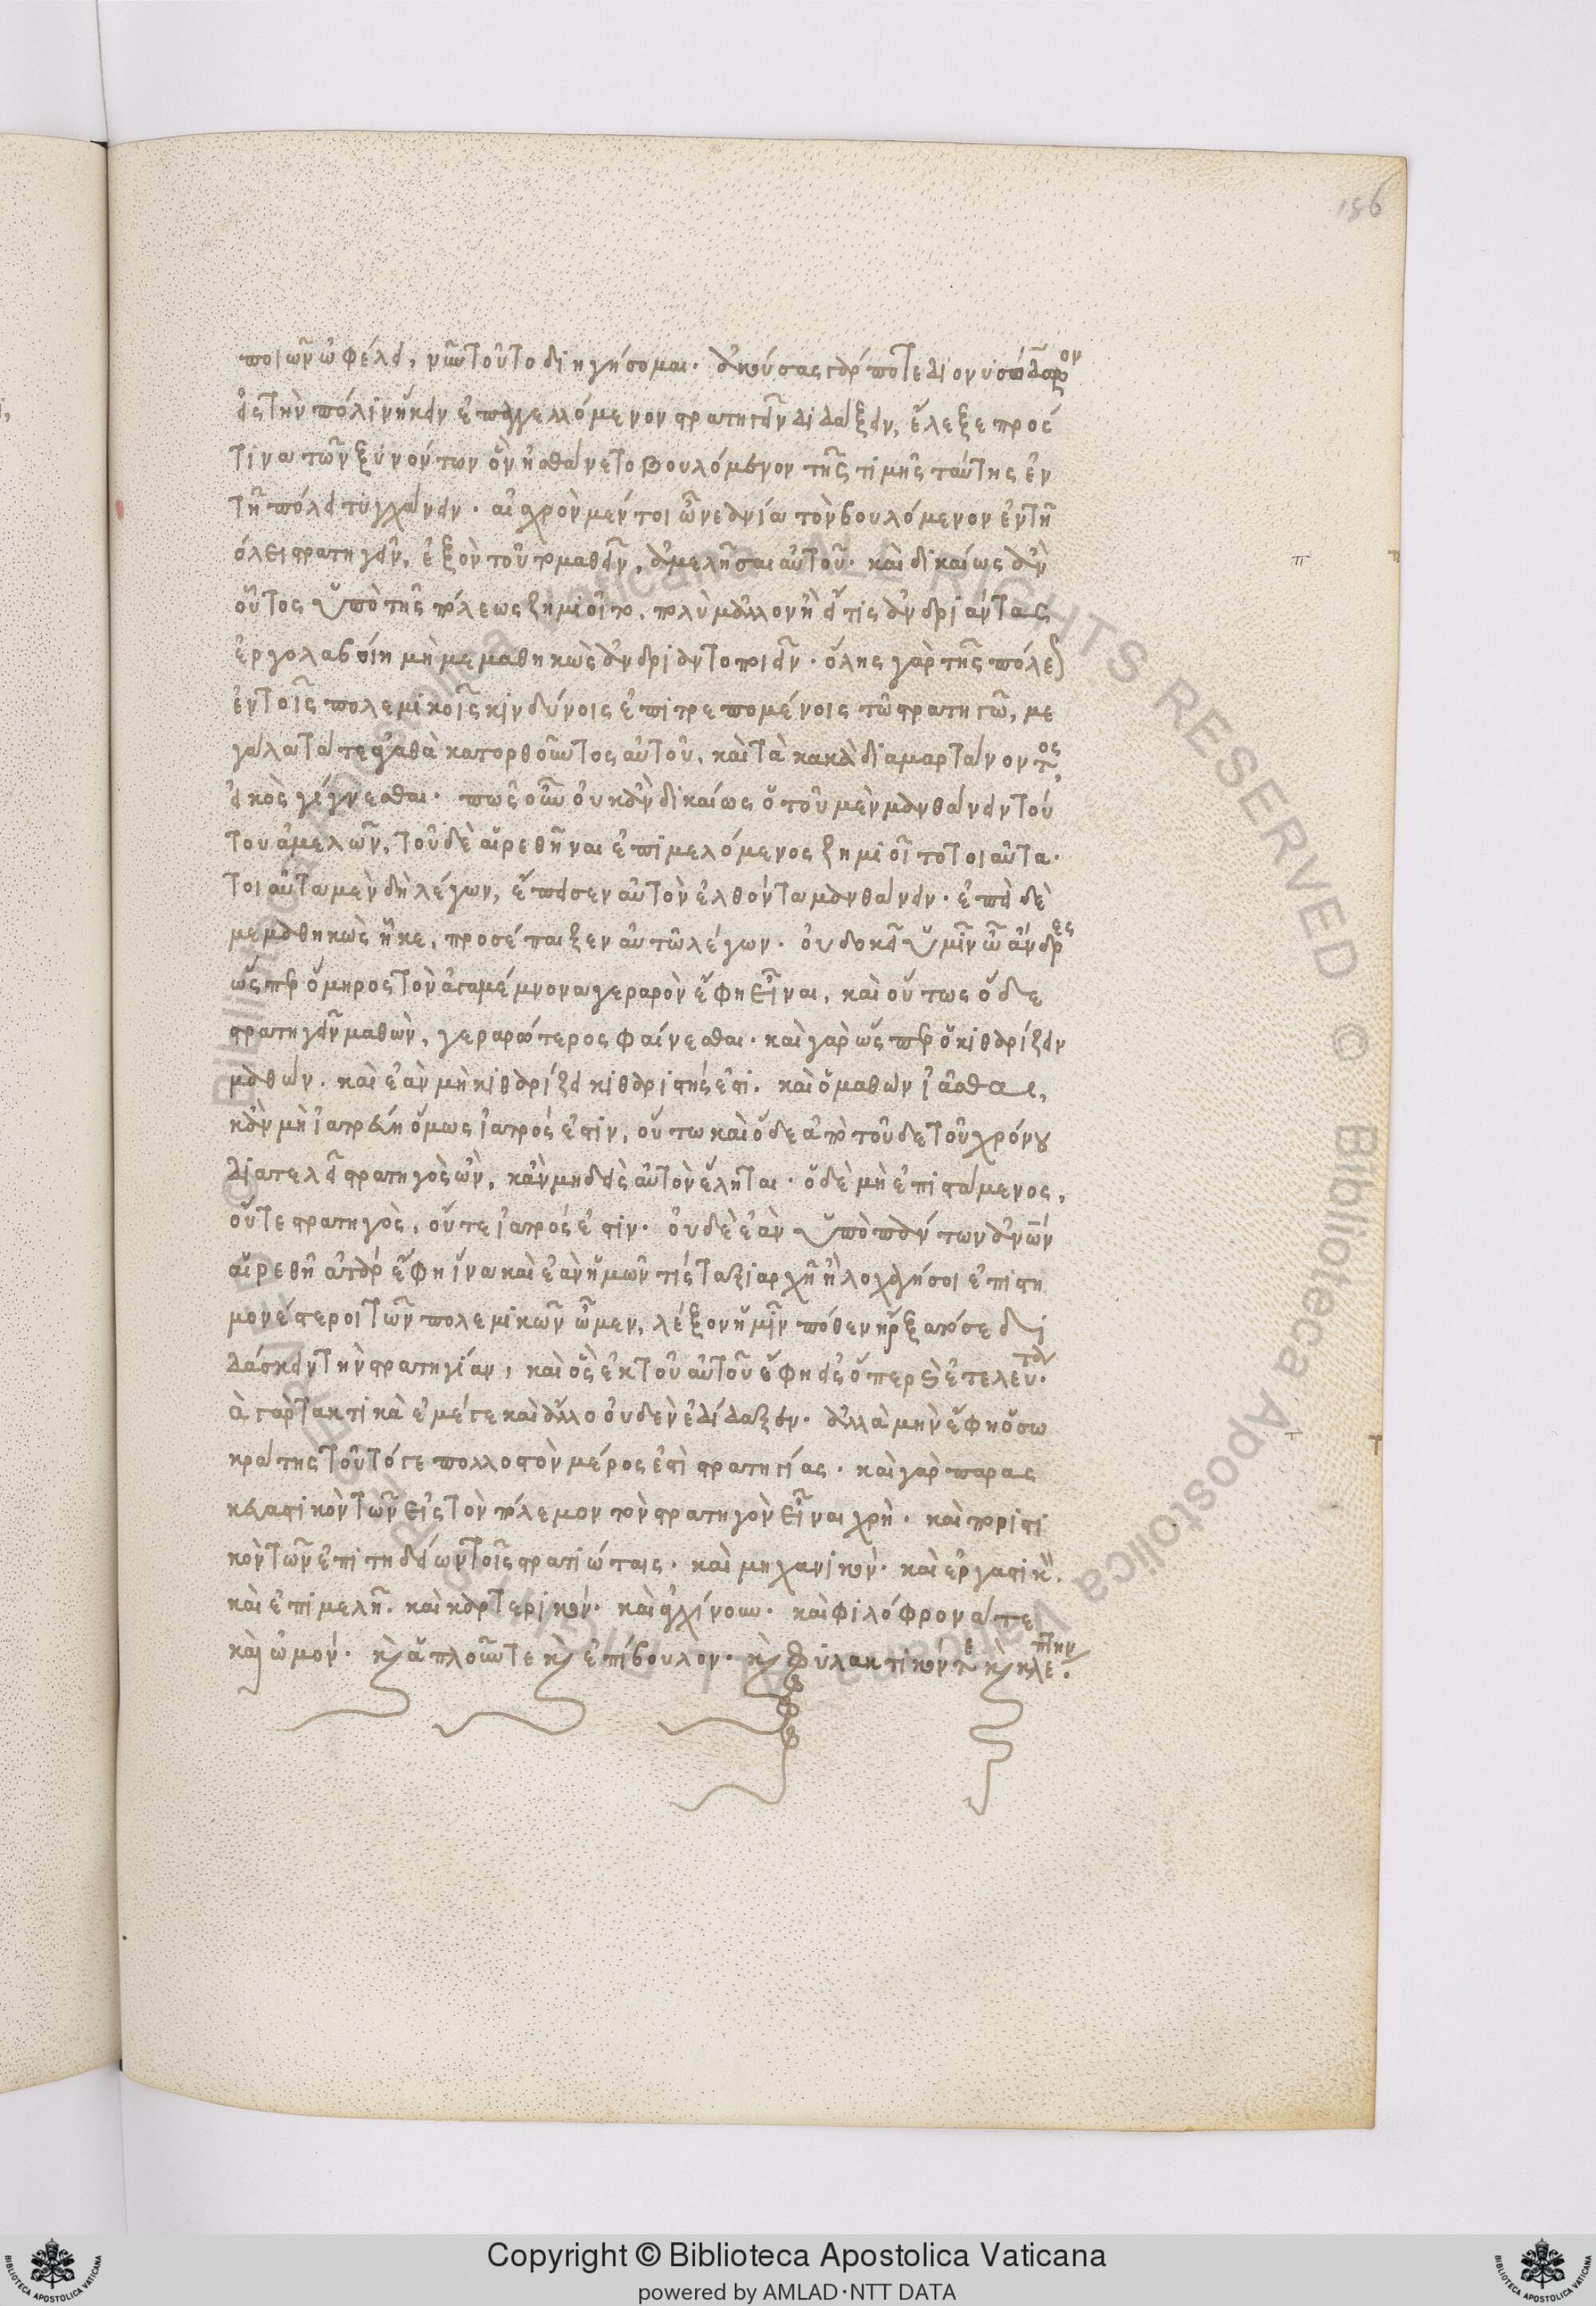 186
ποιῶν ὠφέλει, νῦν τοῦτο διηγήσομαι. ἀκούσας γάρ ποτε διονυσόδωρον
εἰς τὴν πόλιν ἥκειν ἐπαγγελλόμενον στρατηγεῖν διδάξειν, ἔλεξε πρός
τινα τῶν ξυνόντων ὃν ᾐσθάνετο βουλόμενον τῆς τιμῆς ταύτης ἐν
τῇ πόλει τυγχάνειν. αἰσχρὸν μέντοι ὦ νεανία τὸν βουλόμενον ἐν τῇ
όλει στρατηγεῖν, ἐξὸν τοῦτο μαθεῖν, ἀμελῆσαι αὐτοῦ. καὶ δικαίως ἂν
οὗτος ὑπὸ τῆς πόλεως ζημιοῖτο, πολὺ μᾶλλον ἢ εἴ τις ἀνδριάντας
ἐργολαβοίη μὴ μεμαθηκὼς ἀνδριαντοποιεῖν. ὅλης γὰρ τῆς πόλεως
ἐν τοῖς πολεμικοῖς κινδύνοις ἐπιτρεπομένοις τῷ στρατηγῷ, με
γάλα τά τε ἀγαθὰ κατορθοῦντος αὐτοῦ, καὶ τὰ κακὰ διαμαρτάνοντος,
εἰκὸς γίγνεσθαι. πῶς οὖν οὐκ ἂν δικαίως ὁ τοῦ μὲν μανθάνειν τού
του ἀμελῶν, τοῦ δὲ αἱρεθῆναι ἐπιμελόμενος ζημιοῖτο τοιαῦτα.
τοιαῦτα μὲν δὴ λέγων, ἔπεισεν αὐτὸν ἐλθόντα μανθάνειν. ἐπεὶ δὲ
μεμαθηκὼς ἧκε, προσέπαιζεν αὐτῷ λέγων. οὐ δοκεῖ ὑμῖν ὦ ἄνδρες
ὥσπερ ὅμηρος τὸν ἀγαμέμνονα γεραρὸν ἔφη εἶναι, καὶ οὕτως ὅδε
στρατηγεῖν μαθὼν, γεραρώτερος φαίνεσθαι. καὶ γὰρ ὥσπερ ὁ κιθαρίζειν
μαθὼν. καὶ ἐὰν μὴ κιθαρίζει κιθαριστής ἐστι. καὶ ὁ μαθὼν ἰᾶσθαι,
κἂν μὴ ἰατρεύῃ ὅμως ἰατρός ἐστιν, οὕτω καὶ ὅδε ἀπὸ τοῦδε τοῦ χρόνου
διατελεῖ στρατηγὸς ὢν, κἂν μηδεὶς αὐτὸν ἕληται. ὁ δὲ μὴ ἐπιστάμενος,
οὔτε στρατηγὸς, οὔτε ἰατρός ἐστιν. οὐδὲ ἐὰν ὑπὸ πάντων ἀνῶν
αἱρεθῇ ἀτὰρ ἔφη ἵνα καὶ ἐὰν ἡμῶν τίς ταξιαρχῇ ἢ λοχαγῇ σοι ἐπιστη
μονέστεροι τῶν πολεμικῶν ὦμεν, λέξον ἡμῖν πόθεν ἤρξατό σε δι
δάσκειν τὴν στρατηγίαν, καὶ ὃς ἐκ τοῦ αὐτοῦ ἔφη εἰς ὅπερ καὶ ἐτελεύτα.
τὰ γὰρ τακτικὰ ἐμέ γε καὶ ἄλλο οὐδὲν ἐδίδαξεν. ἀλλὰ μὴν ἔφη ὁ σω
κράτης τοῦτό γε πολλοστὸν μέρος ἐστὶ στρατηγίας. καὶ γὰρ παρας
κευαστικὸν τῶν εἰς τὸν πόλεμον τὸν στρατηγὸν εἶναι χρὴ. καὶ ποριστι
κὸν τῶν ἐπιτηδείων τοῖς στρατιώταις. καὶ μηχανικόν. καὶ ἐργαστικὸν.
καὶ ἐπιμελῆ. καὶ καρτερικόν. καὶ ἀγχίνουν. καὶ φιλόφρονά τε
καὶ ὠμόν. καὶ ἁπλοῦν τε καὶ ἐπίβουλον. καὶ φυλακτικόν τε καὶ κλέπτην.
Copyright © Biblioteca Apostolica Vaticana
powered by AMLAD·NTT DATA